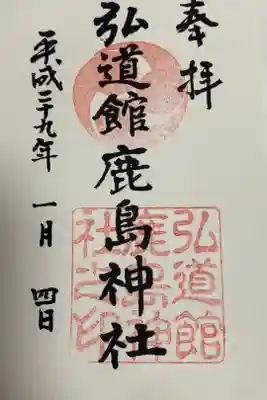 奉拝
弘道館鹿島神社
平成二十九年 一月 四日
弘道館
鹿島神
社之印